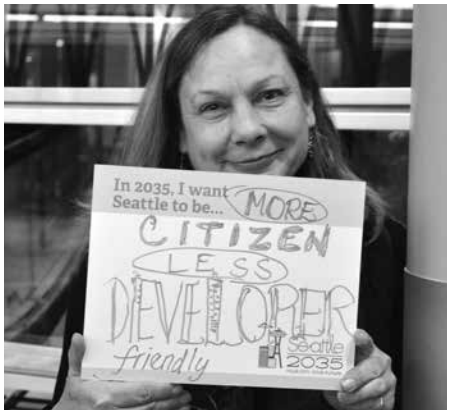 In 2035, I want
Seattle to be... MORE
CITIZEN
LESS
DEVELOPER
friendly
Seattle
2035